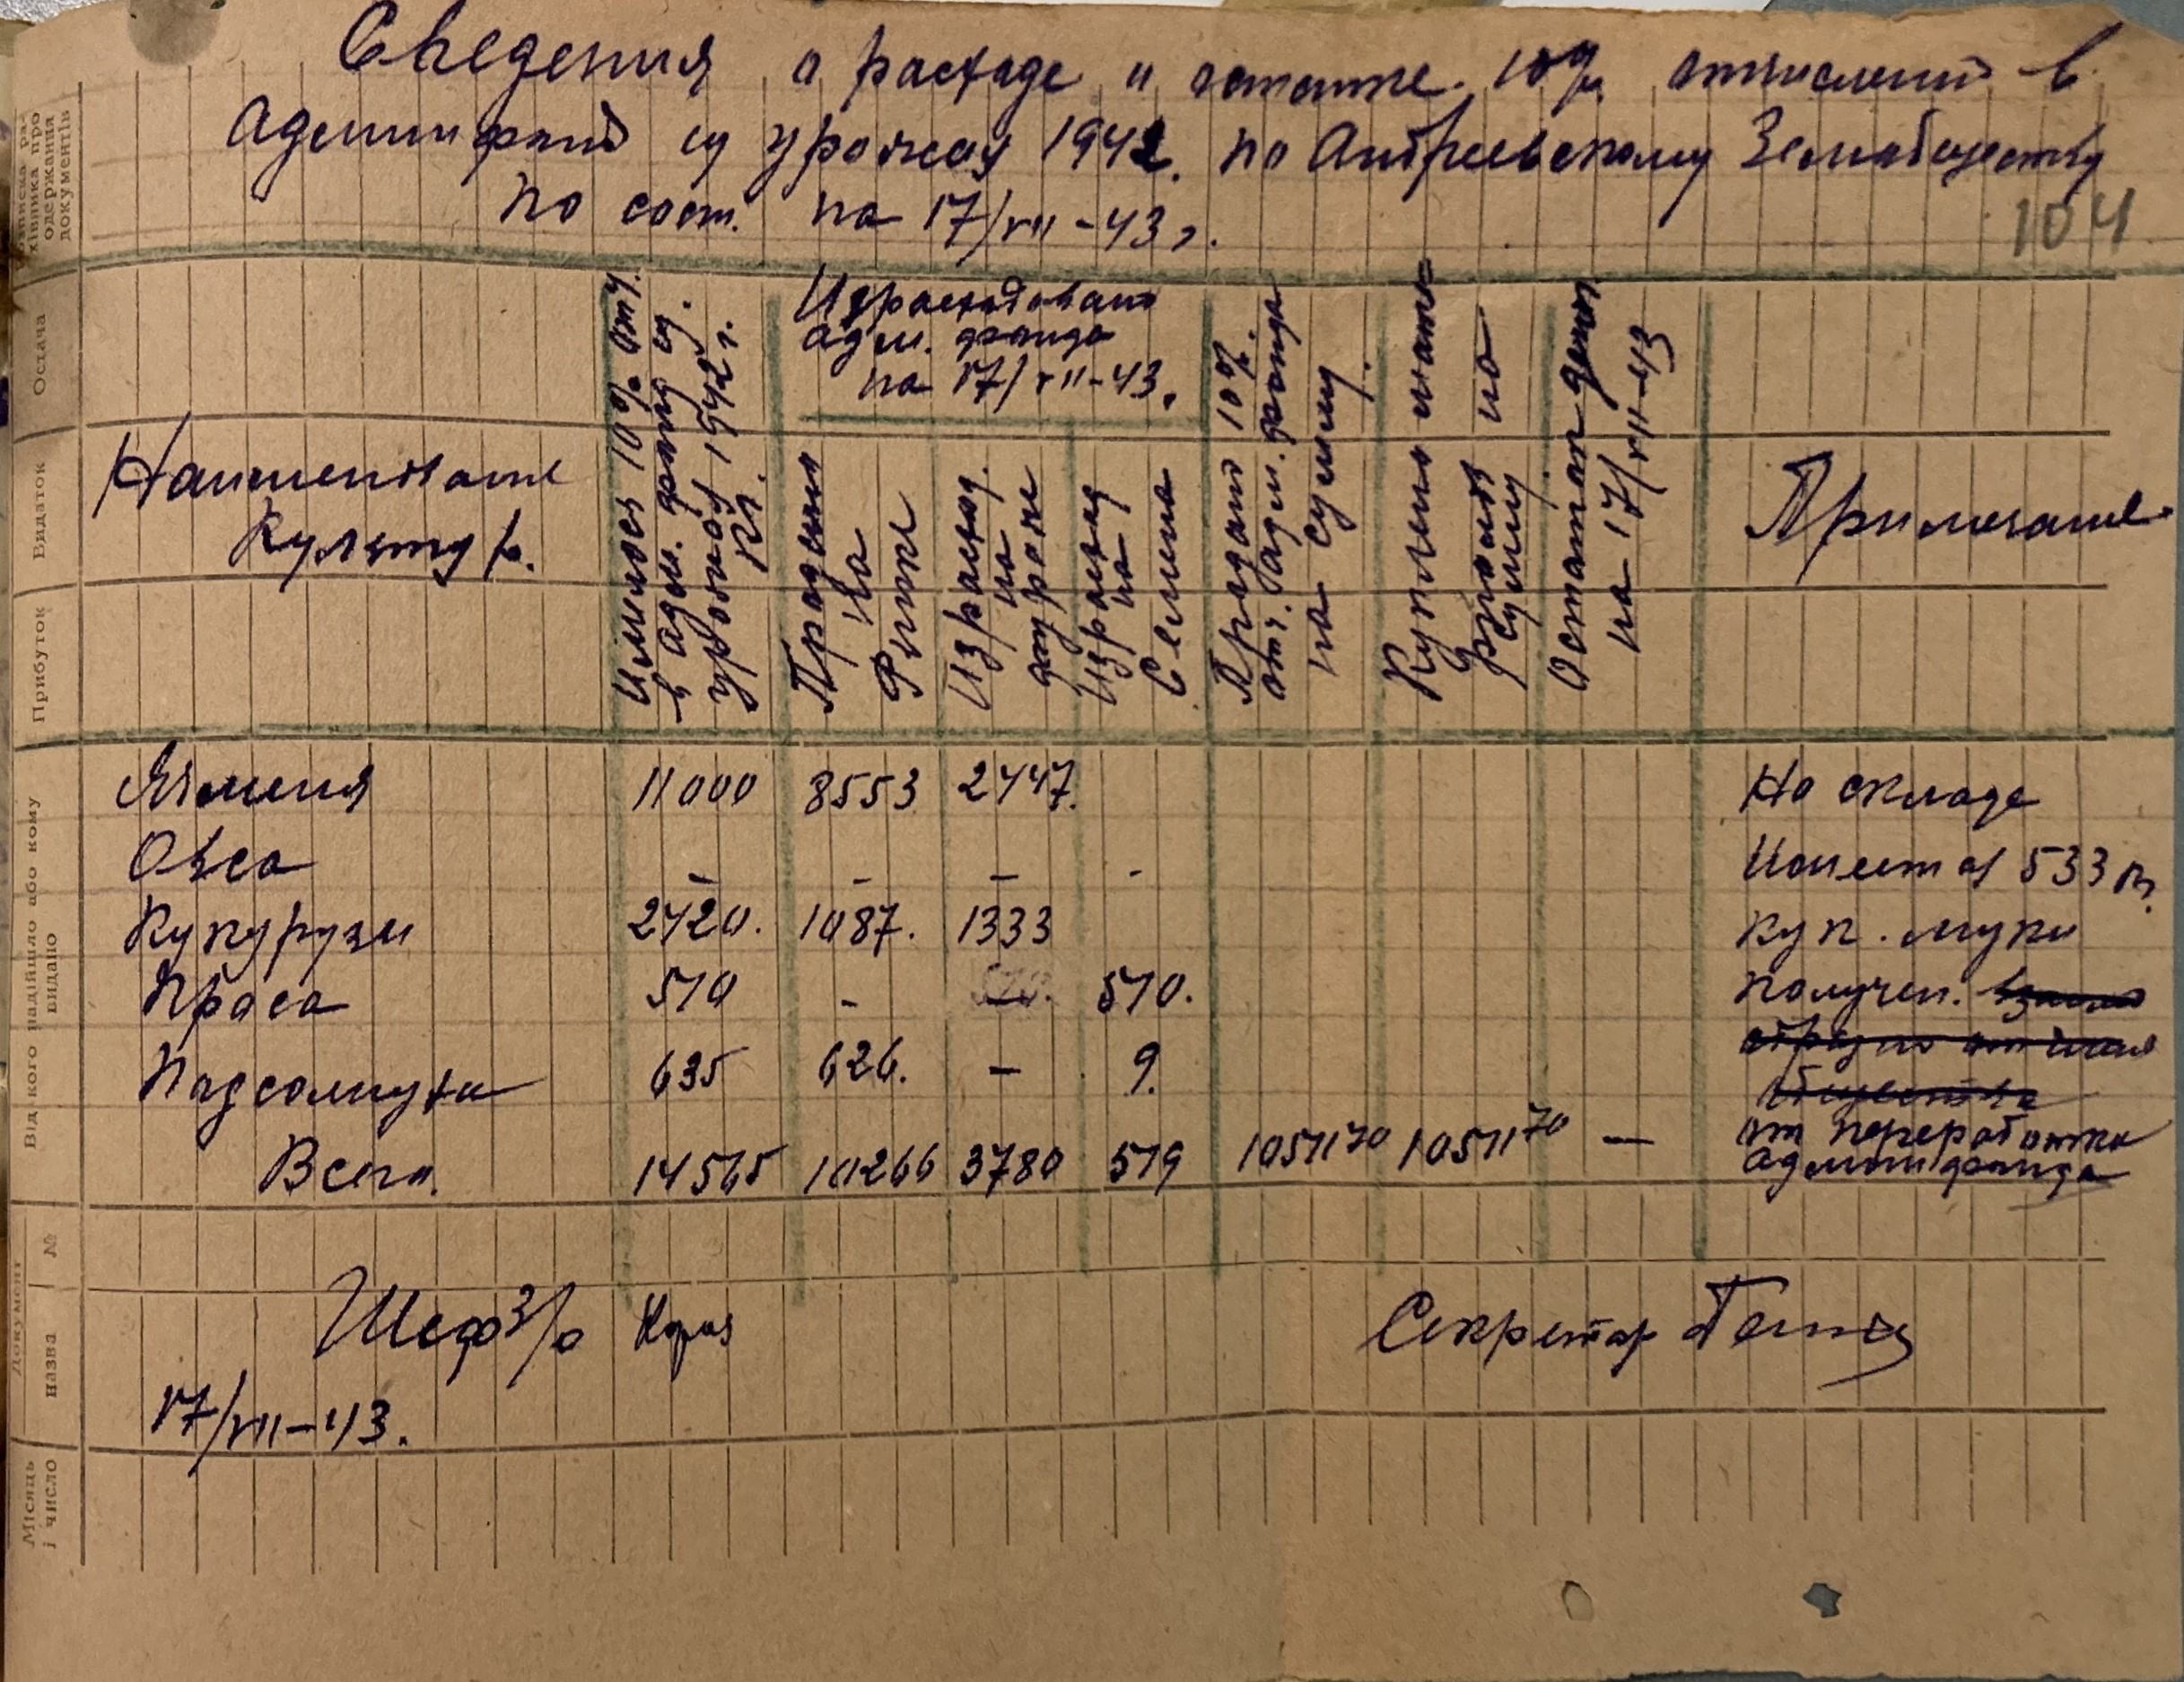 Сведения о расходе и остатке 10% отчислений в
админфонд из урожая 1942. по Андреевскому Земобществу
по сост. на 17/VII-43 г.
104
Розписка ра-
хівника про
одержання
документів
Остача
Видаток
Прибуток
Від кого надійшло або кому
видано
№
Документ
назва
Місяць
і число
Наименование
Культур.
Имелось 10% отч.
в адм. фонд из
урожая 1942 г.
кг.
Израсходовано
адм. фонда
на 17/VII-43.
Продано
на
рынке
Израсход.
на
др. роже
Израсход
на
Семена
Продано 10%.
отч. адм. фонда
на сумму.
Куплено
на
сумму
Остаток денег
на 17/VII-43
Примечание
Ячменя 11000 8553 2447. На складе
Овса – – – - Имеется 533 кг.
Кукурузы 2420. 1087. 1333 кук. муки
Проса 510 - 510. получен.
Подсолнуха 635 626. – 9.
Всего. 14565 10266 3780 519 10511 70 10511 70 — от переработки
админфонда
Шеф з/о
Секретар
17/VII-43.